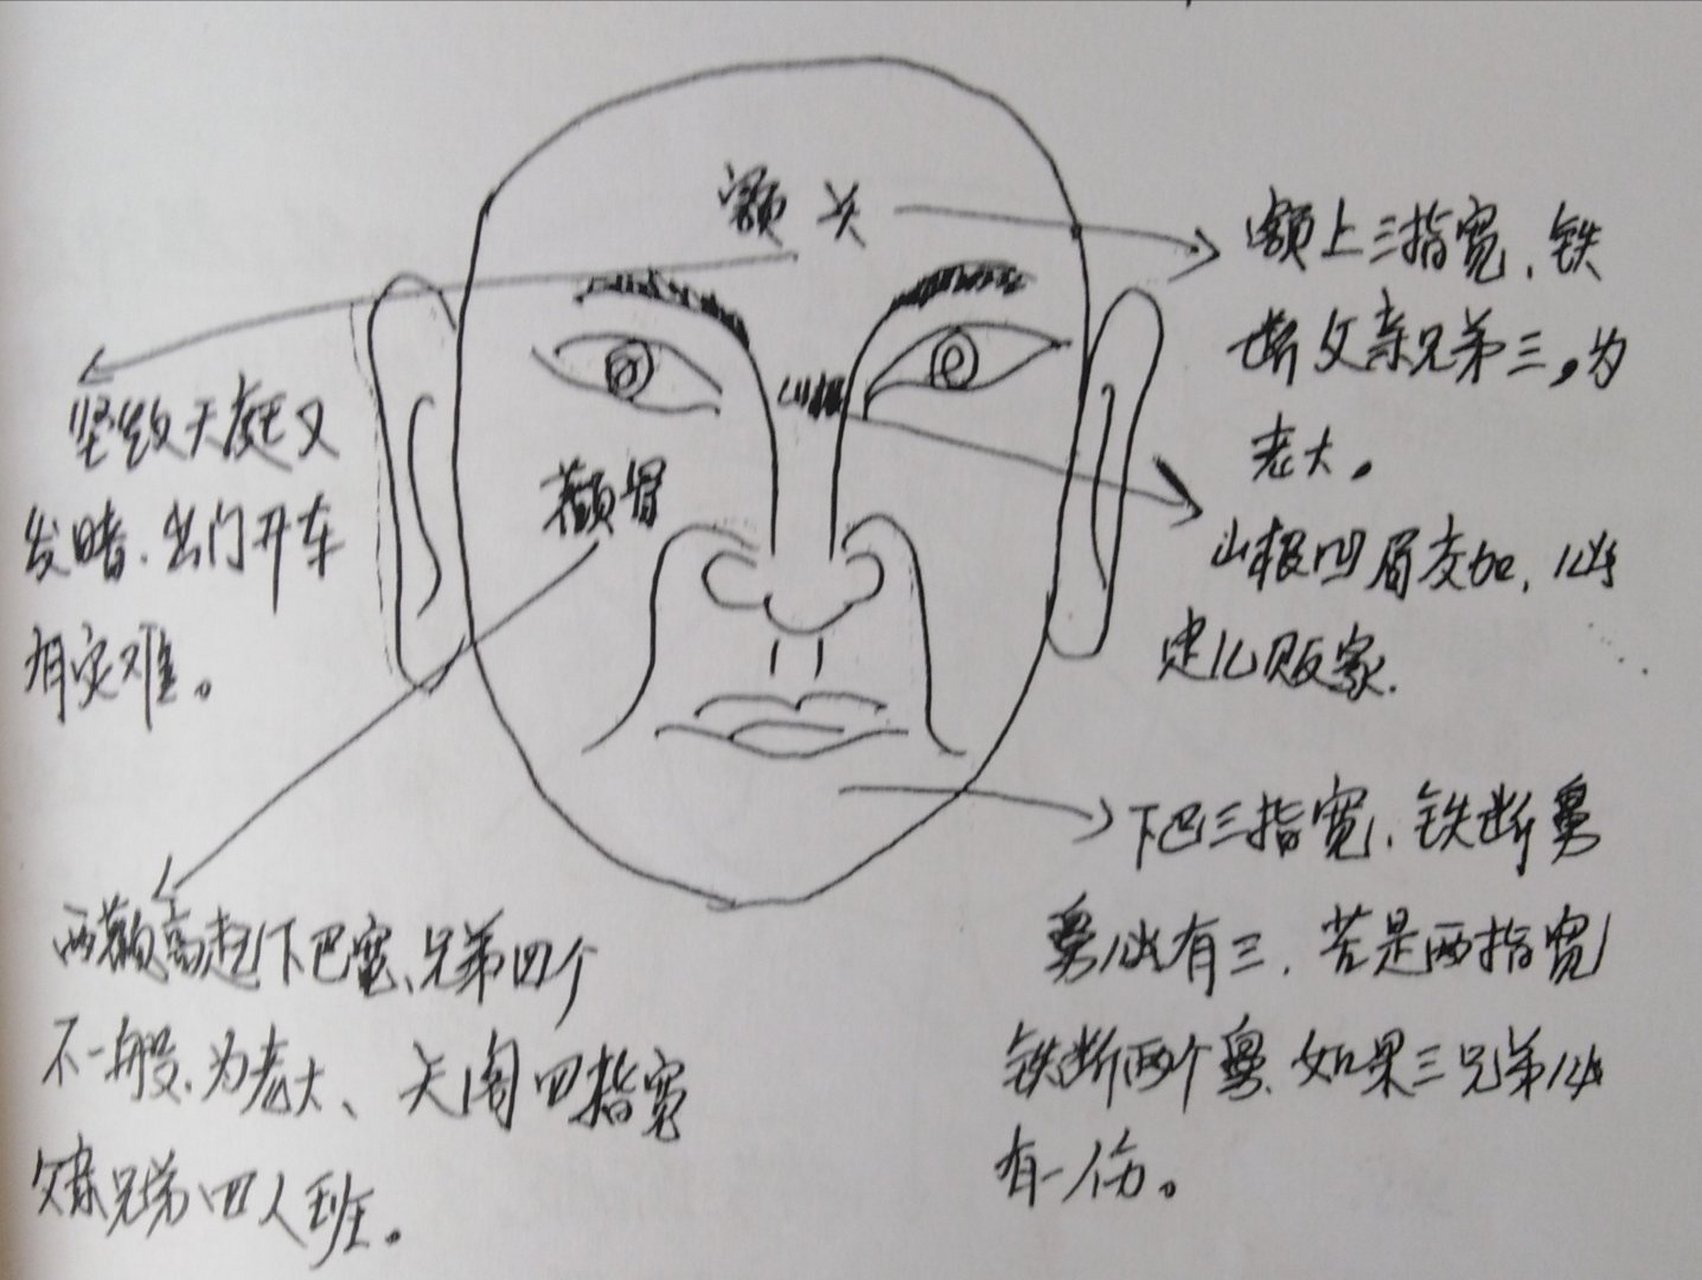 额头
额上三指宽、铁
断父亲兄弟三,为
老大。
竖纹天庭又
发暗、出门开车
有灾难。
颧骨
山根凹眉交加,必
定儿败家.
下巴三指宽,铁断舅
舅必有三,若是两指宽
铁断两个舅、如果三兄弟必
有一伤。
两颧高起下巴宽、兄弟四个
不一般、为老大、天阁四指宽
父亲兄弟四人班。